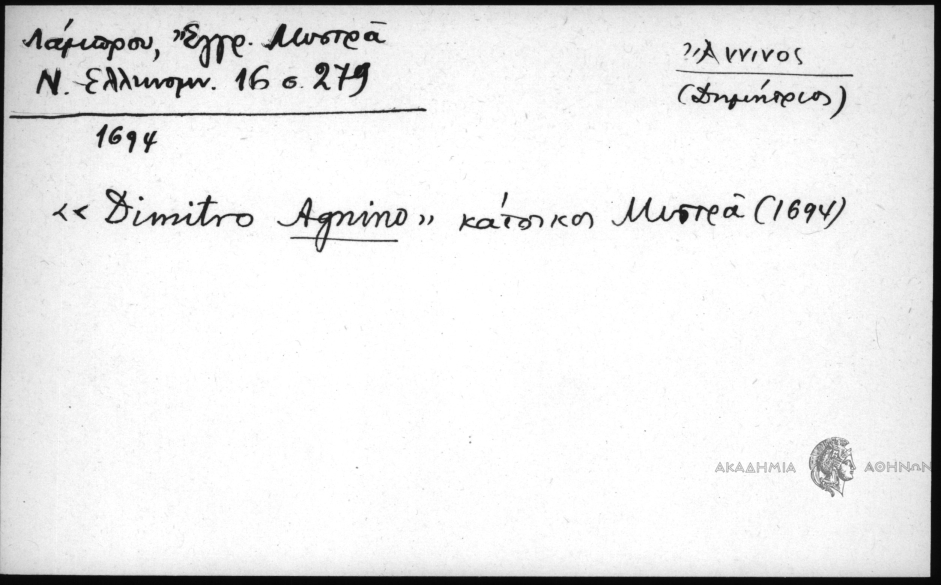 Λάμπρου, Ἔγγρ. Μυστρᾶ
Ν. Ελληνομν. 16 σ. 279
1694
Ἄννινος
(Δημήτριος)
«Dimitro Agnino» κάτοικος Μυστρᾶ (1694)
ΑΚΑΔΗΜΙΑ ΑΘΗΝΩΝ